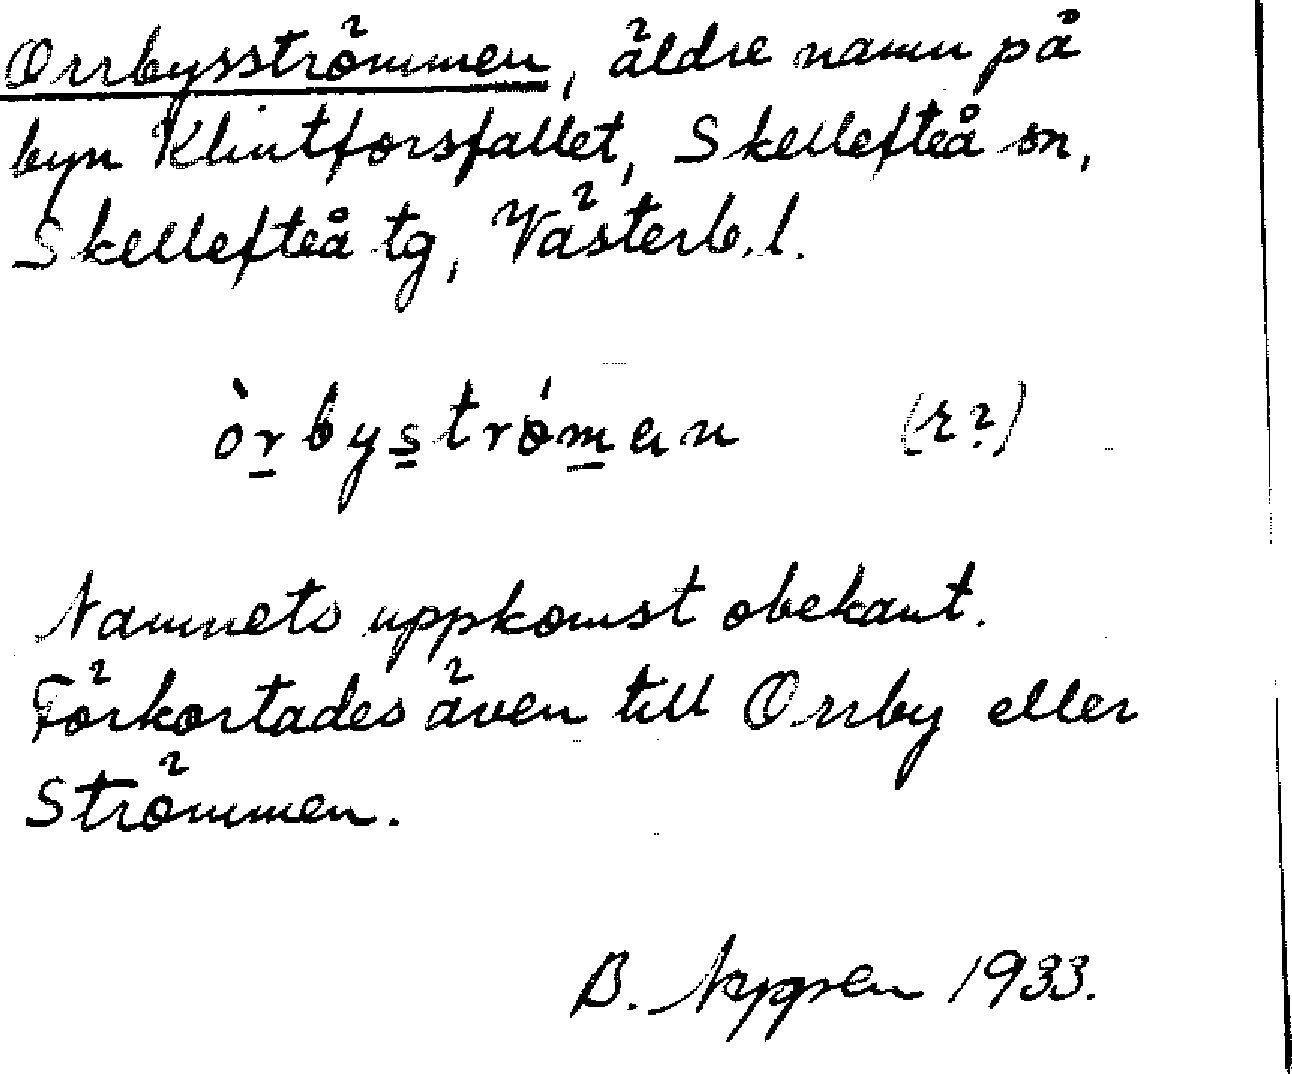 Orrbysströmmen, äldre namn på
byn Klintforsfallet, Skellefteå sn,
Skellefteå tg, Västerb. l.
òr̲bys̲tróm̲en (r?)
Namnets uppkomst obekant.
Förkortades även till Orrby eller
Strömmen.
B. Nygren 1933.